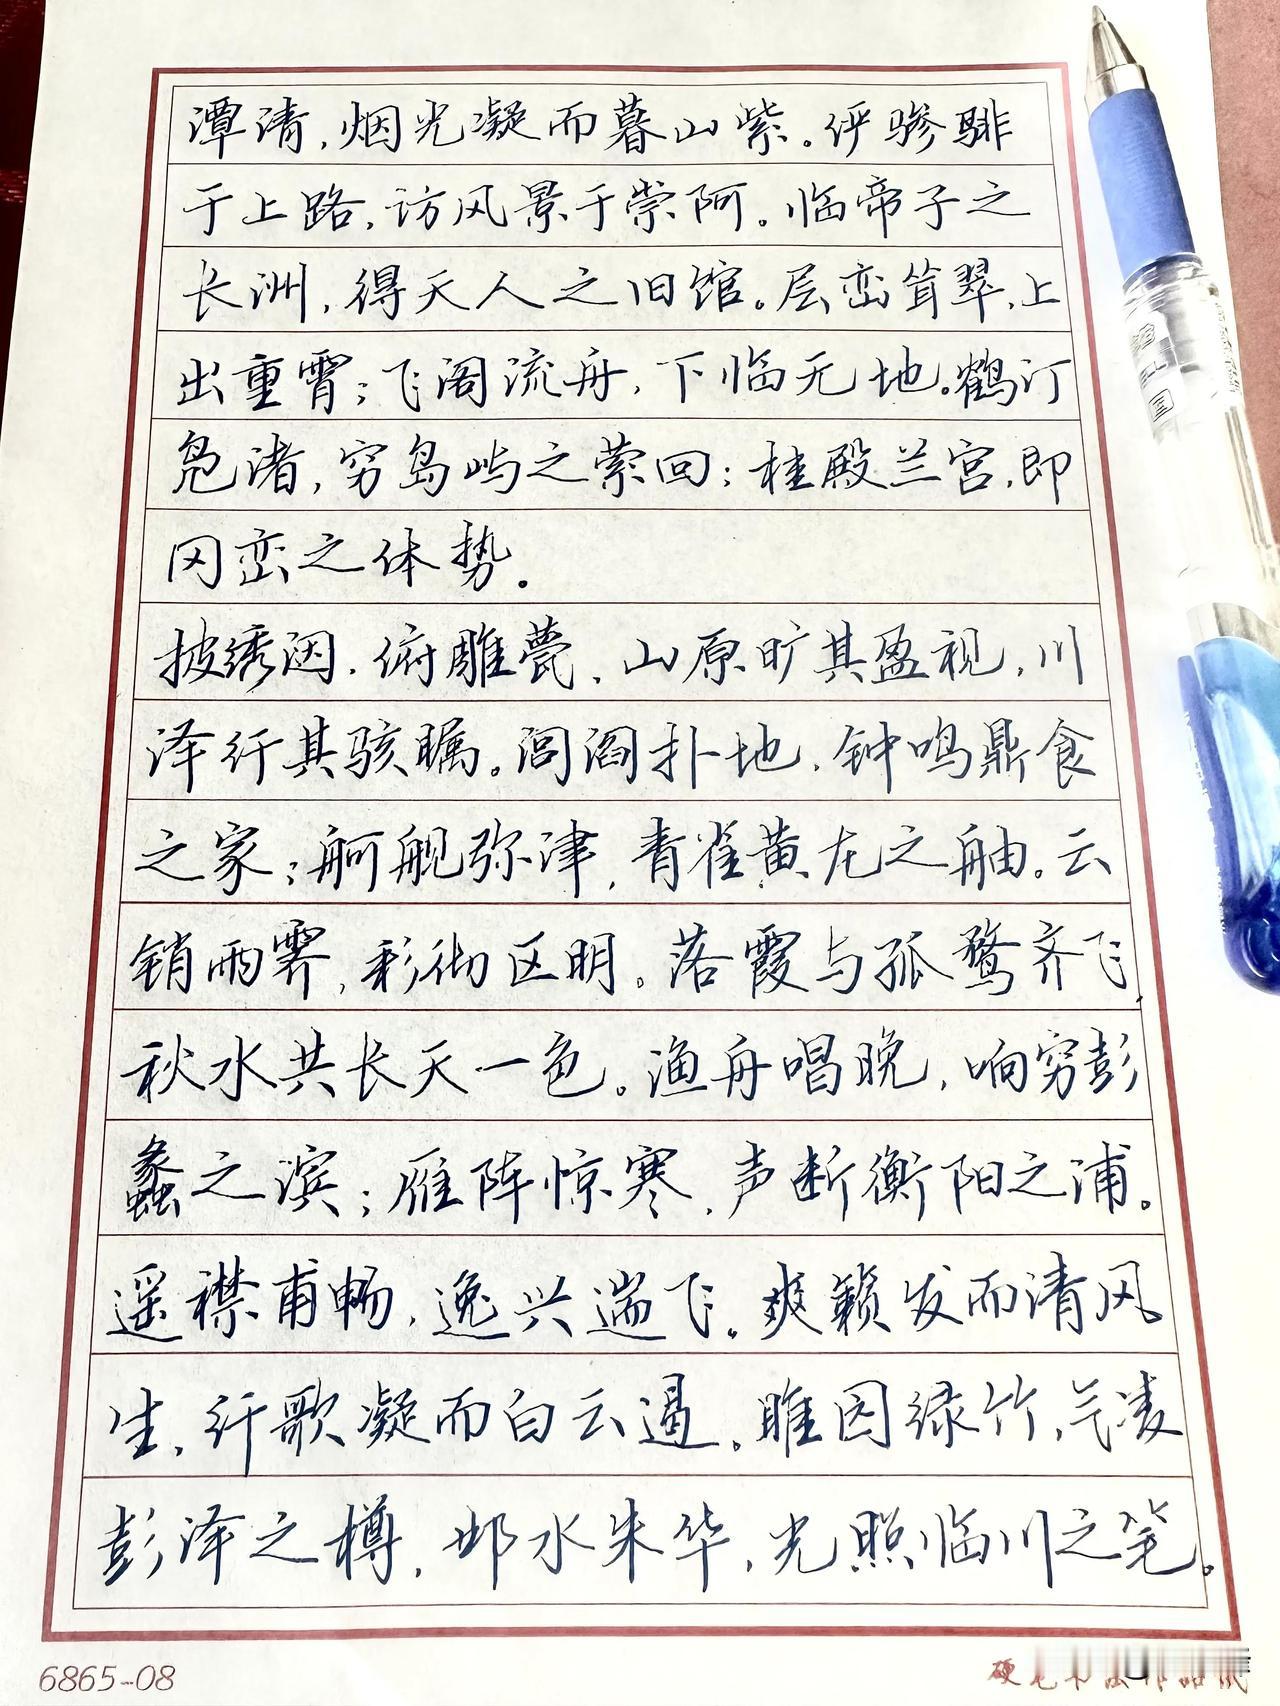 潭清,烟光凝而暮山紫。俨骖騑
于上路,访风景于崇阿。临帝子之
长洲,得天人之旧馆。层峦耸翠,上
出重霄;飞阁流舟,下临无地。鹤汀
凫渚,穷岛屿之萦回;桂殿兰宫,即
冈峦之体势。
披绣闼,俯雕甍,山原旷其盈视,川
泽纡其骇瞩。闾阎扑地,钟鸣鼎食
之家;舸舰弥津,青雀黄龙之舳。云
销雨霁,彩彻区明。落霞与孤鹜齐飞,
秋水共长天一色。渔舟唱晚,响穷彭
蠡之滨;雁阵惊寒,声断衡阳之浦。
遥襟甫畅,逸兴遄飞。爽籁发而清风
生,纤歌凝而白云遏。睢园绿竹,气凌
彭泽之樽,邺水朱华,光照临川之笔。
6865-08